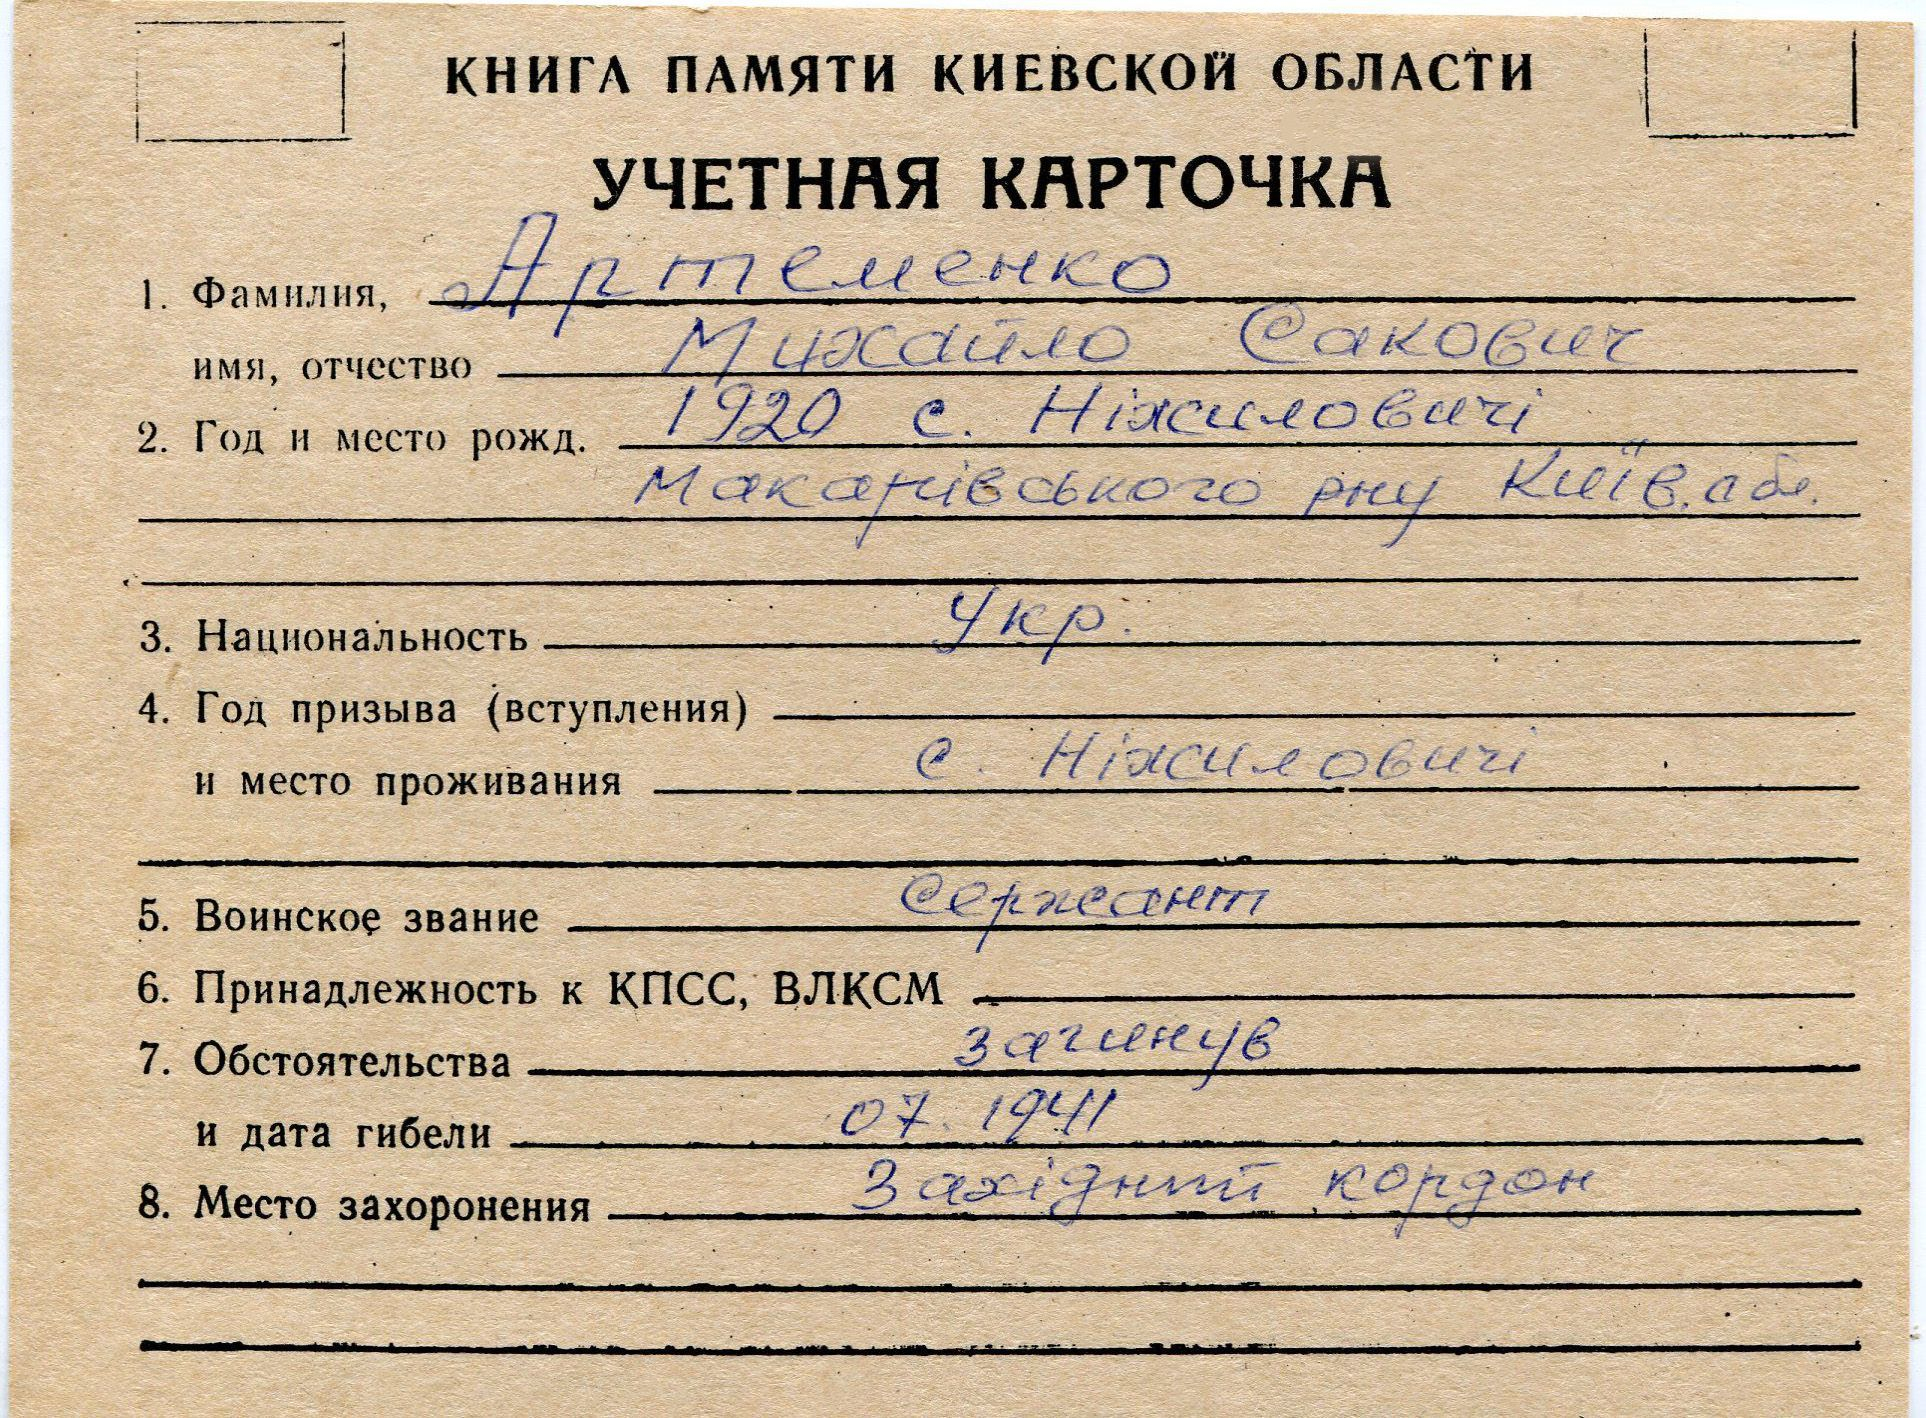 КНИГА ПАМЯТИ КИЕВСКОЙ ОБЛАСТИ
УЧЕТНАЯ КАРТОЧКА
1. Фамилия, Артеменко
имя, отчество Михайло Сакович
2. Год и место рожд. 1920 с. Ніжиловичі
Макарівського рну Київ. обл.
3. Национальность Укр.
4. Год призыва (вступления)
и место проживания с. Ніжиловичі
5. Воинское звание Сержант
6. Принадлежность к КПСС, ВЛКСМ
7. Обстоятельства загинув
и дата гибели 07. 1941
8. Место захоронения Західний кордон